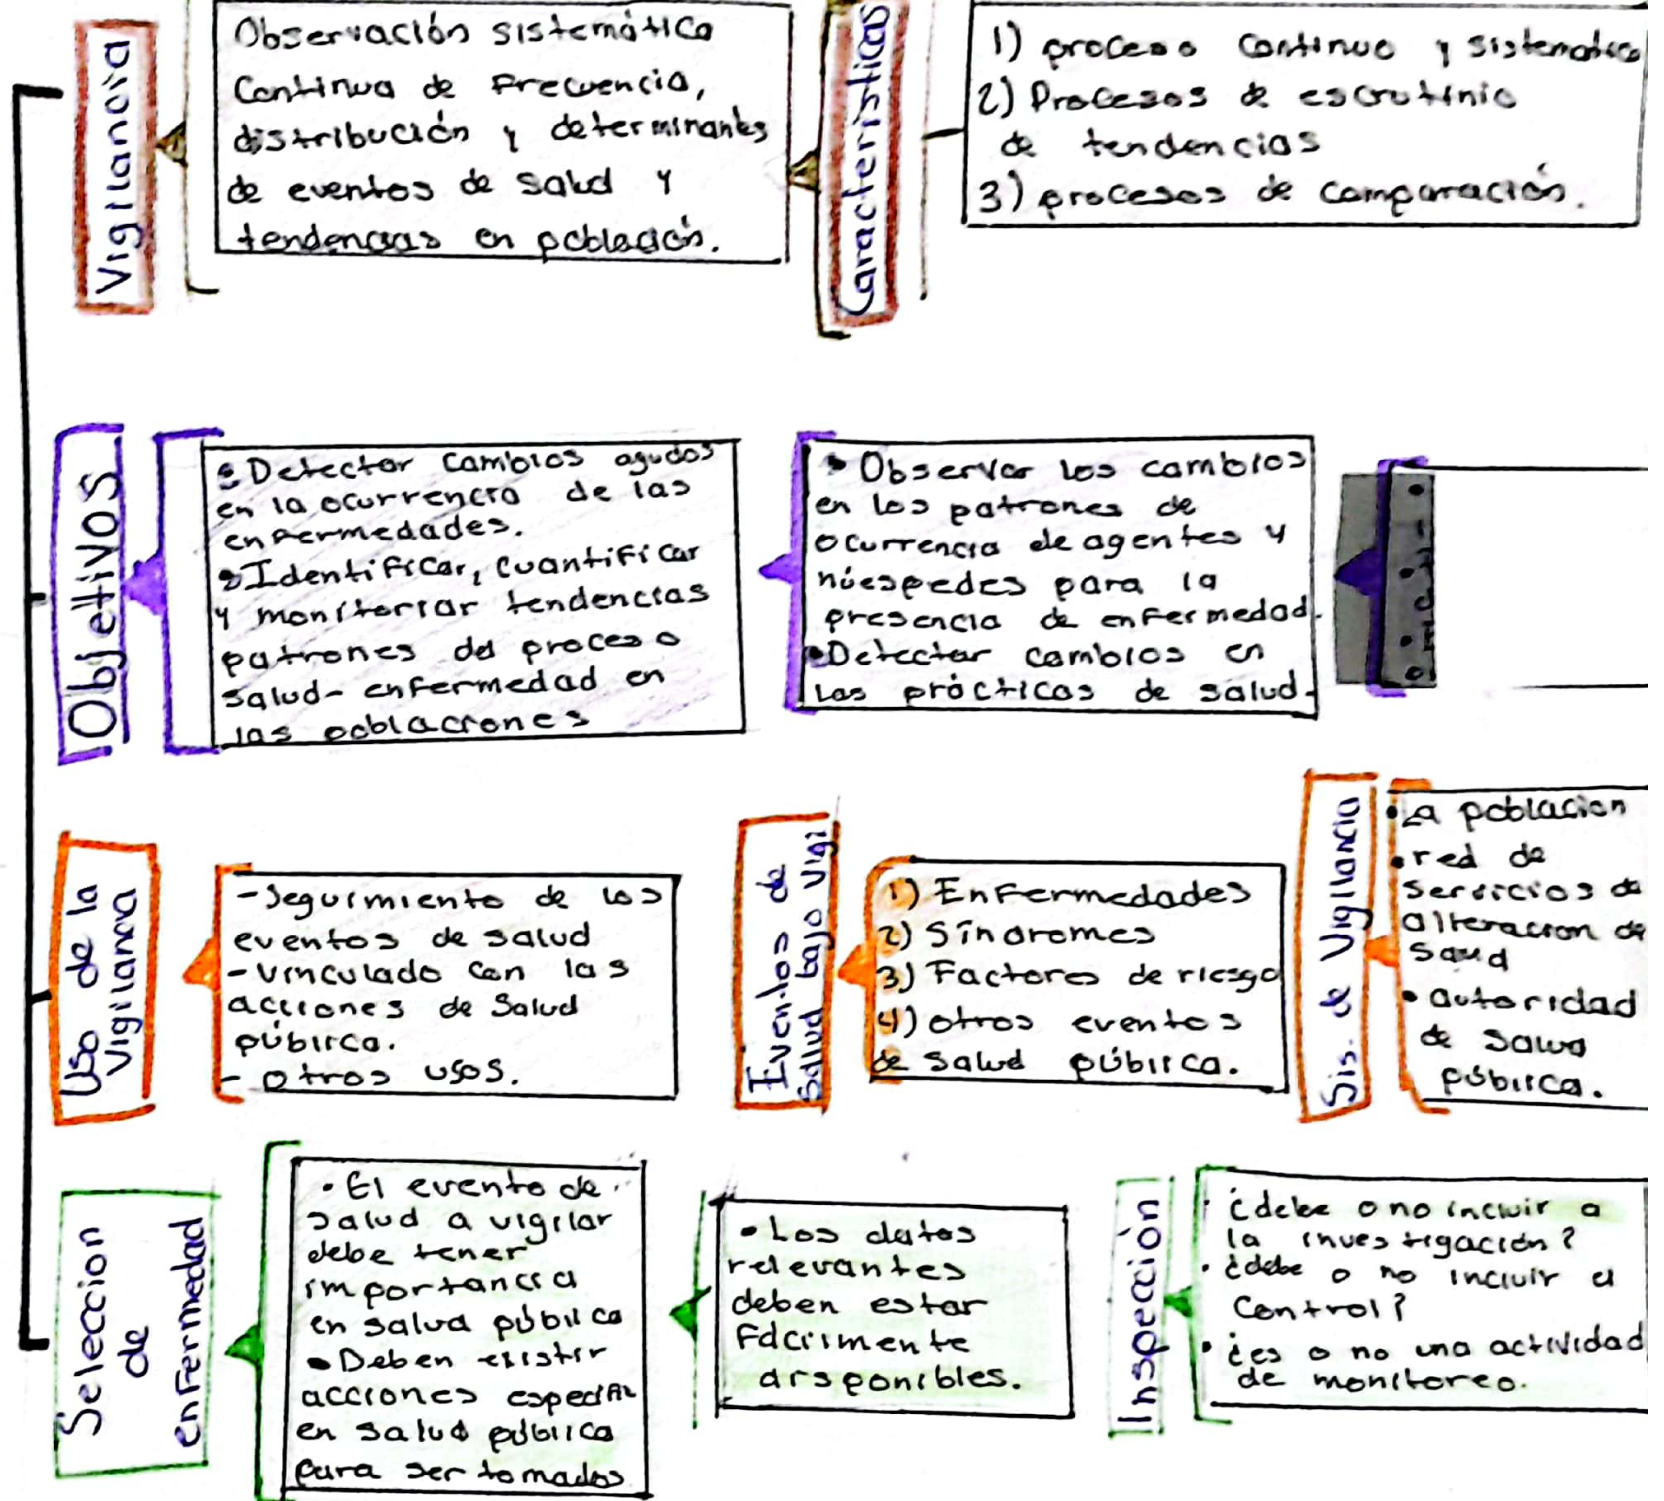 Vigilancia
Observación sistemática
Continua de Frecuencia,
distribución y determinantes
de eventos de salud y
tendencias en población.
Características
1) proceso continuo y sistematico
2) Procesos de escrutinio
de tendencias
3) procesos de comparación.
Objetivos
Detectar cambios agudos
en la ocurrencia de las
enfermedades.
Identificar, cuantificar
y monitoriar tendencias
patrones del proceso
salud-enfermedad en
las poblaciones
• Observar los cambios
en los patrones de
ocurrencia de agentes y
húespedes para la
presencia de enfermedad.
• Detectar cambios en
Las prácticas de salud.
Uso de la
Vigilancia
- Seguimiento de los
eventos de salud
- vinculado con las
acciones de Salud
pública.
- otros usos.
Eventos de
Salud bajo Vigi
1) Enfermedades
2) Síndromes
3) Factores de riesgo
4) otros eventos
de salud pública.
Sis. de Vigilancia
• La poblacion
• red de
servicios de
alteracion de
• autoridad
de
pública.
Seleccion
de
enfermedad
• El evento de
salud a vigilar
debe tener
importancia
en salud pública
• Deben existir
acciones especific
en salud pública
para ser tomados
• Los datos
relevantes
deben estar
Fácilmente
disponibles.
Inspección
• ¿debe o no incluir a
la investigación?
• ¿debe o no incluir el
Control?
• ¿es o no una actividad
de monitoreo.